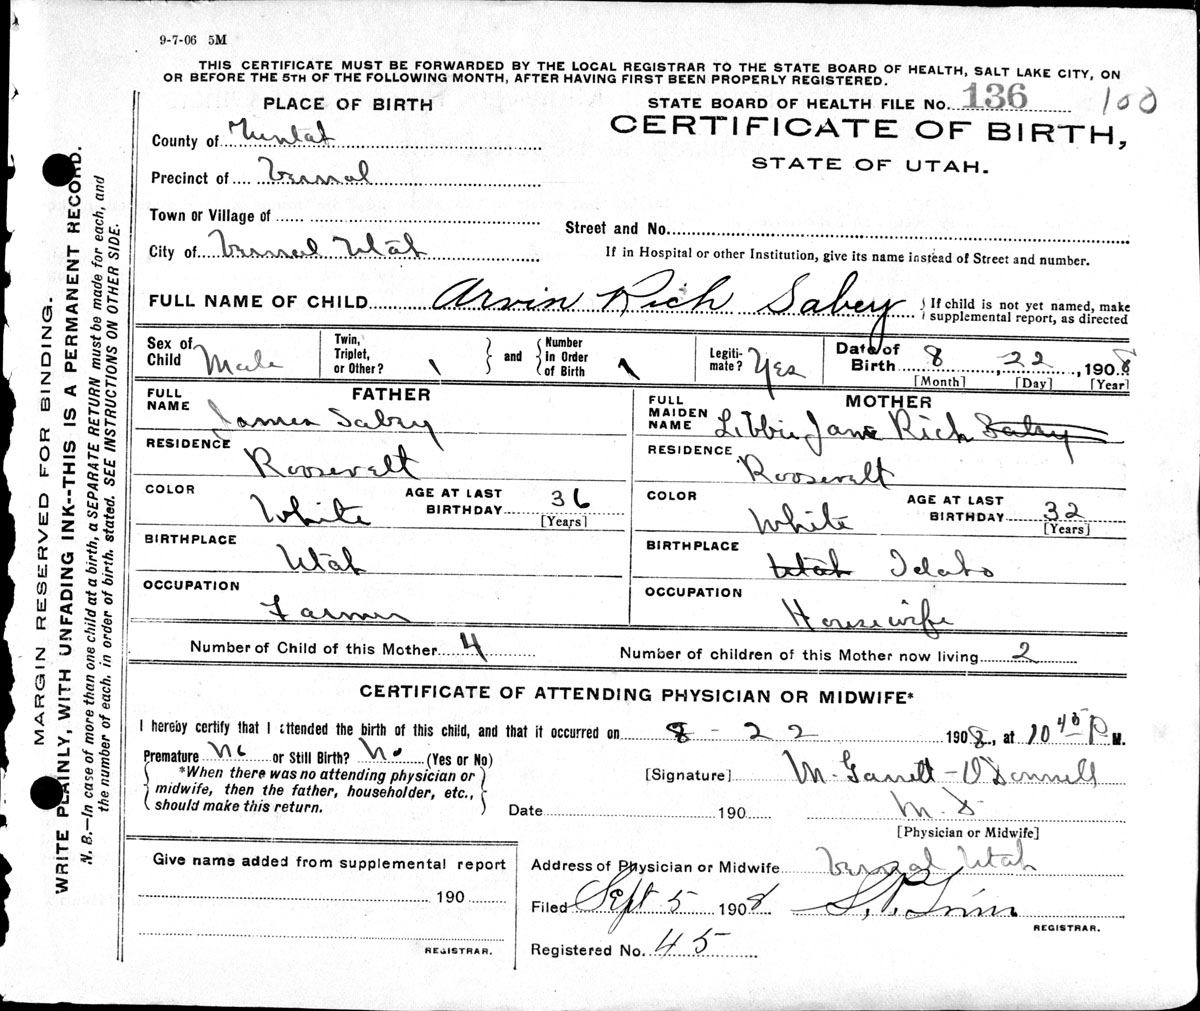 9-7-06 5M
THIS CERTIFICATE MUST BE FORWARDED BY THE LOCAL REGISTRAR TO THE STATE BOARD OF HEALTH, SALT LAKE CITY, ON
OR BEFORE THE 5TH OF THE FOLLOWING MONTH, AFTER HAVING FIRST BEEN PROPERLY REGISTERED.
PLACE OF BIRTH
STATE BOARD OF HEALTH FILE No. 136 100
CERTIFICATE OF BIRTH,
STATE OF UTAH.
County of
Precinct of Vernal
Town or Village of
City of Vernal Utah
Street and No.
If in Hospital or other Institution, give its name instead of Street and number.
FULL NAME OF CHILD Arvin Rich Sabey { If child is not yet named, make
supplemental report, as directed
Sex of Child Male
Twin, Triplet, or Other? 1 } and { Number In Order of Birth 1
Legiti-mate? Yes
Date of Birth 8, 22, 1908
[Month] [Day] [Year]
FATHER
FULL NAME James Sabey
RESIDENCE Roosevelt
COLOR White AGE AT LAST BIRTHDAY 36
[Years]
BIRTHPLACE Utah
OCCUPATION Farmer
MOTHER
FULL MAIDEN NAME Libbie Jane Rich Sabey
RESIDENCE Roosevelt
COLOR White AGE AT LAST BIRTHDAY 32
[Years]
BIRTHPLACE Utah Idaho
OCCUPATION Housewife
Number of Child of this Mother 4 Number of children of this Mother now living 2
CERTIFICATE OF ATTENDING PHYSICIAN OR MIDWIFE*
I hereby certify that I attended the birth of this child, and that it occurred on 8-22 1908, at 10 45 P M.
Premature No or Still Birth? No (Yes or No)
{ *When there was no attending physician or
midwife, then the father, householder, etc.,
should make this return. }
[Signature] M. Garrett-O'Donnell
Date 190 M.D.
[Physician or Midwife]
Give name added from supplemental report
190
REGISTRAR.
Address of Physician or Midwife Vernal Utah
Filed Sept 5 1908 S. P.
REGISTRAR.
Registered No. 45
MARGIN RESERVED FOR BINDING.
WRITE PLAINLY, WITH UNFADING INK--THIS IS A PERMANENT RECORD.
N. B.—In case of more than one child at a birth, a SEPARATE RETURN must be made for each, and
the number of each, in order of birth, stated. SEE INSTRUCTIONS ON OTHER SIDE.